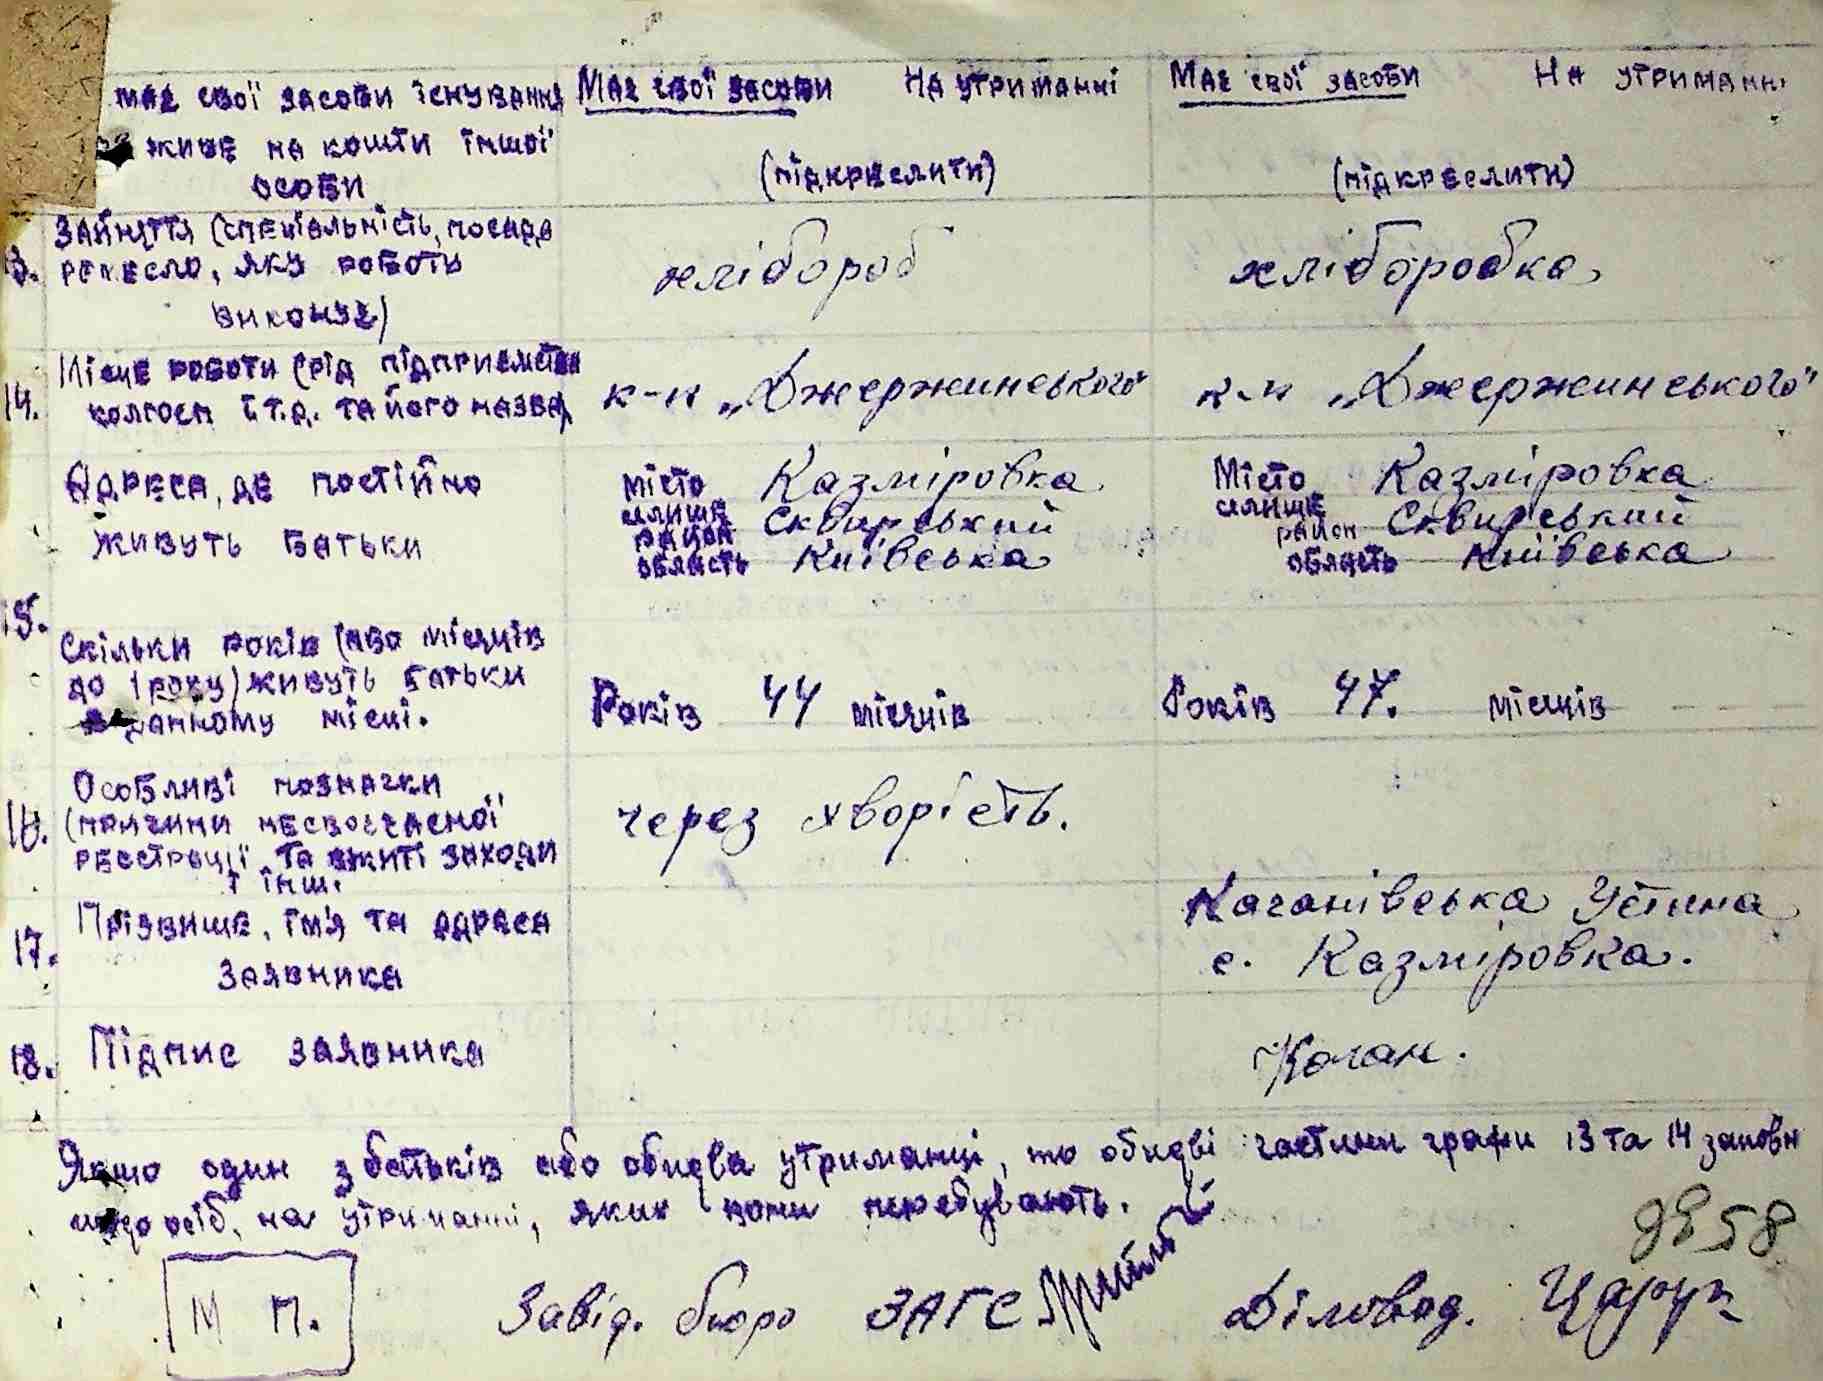 має свої засоби існування Має свої засоби На утриманні Має свої засоби На утриманні
живе на кошти іншої
особи (підкреслити) (підкреслити)
Заняття (спеціальність, посада
ремесло, яку роботу хлібороб хліборобка
виконує)
14. Місце роботи (рід підприємства к-п „Джержинського" к-п „Джержинського"
колгосп і т.д. та його назва)
Адреса, де постійно місто Казміровка Місто Казміровка
селище селище
живуть батьки район Сквирський район Сквирський
область Київська область Київська
15.
Скільки років (або місяців
до 1 року) живуть батьки
в данному місці. Років 44 місяців Років 47. місяців
16. Особливі позначки
(причини несвоєчасної через хворість.
реєстрації та вжиті заходи
і інш.
17. Прізвище, ім'я та адреса Каганівська Устина
Заявника с. Казміровка.
18. Підпис заявника Каган.
Якщо один з батьків або обидва утриманці, то обидві частини графи 13 та 14 заповн
щодо осіб, на утриманні, яких вони перебувають.
М П. Завід. бюро ЗАГС Діловод. Царук